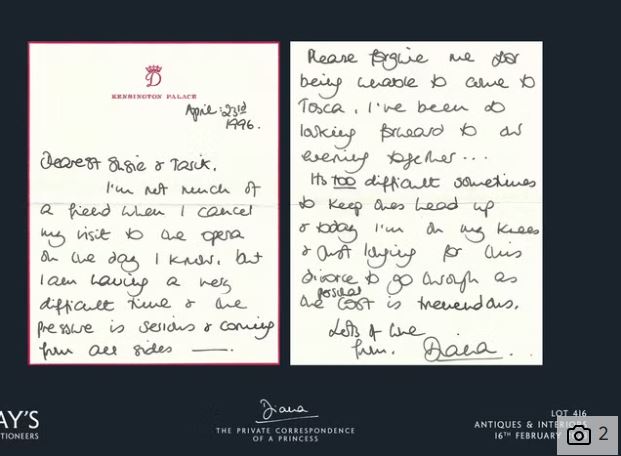 D
KENSINGTON PALACE
April : 23rd
1996.
Dearest Susie & Tarik.
I'm not much of
a friend when I cancel
my visit to the opera
on the day I know, but
I am having a very
difficult time & the
pressure is serious & coming
from all sides —.
Please forgive me for
being unable to come to
Tosca. I've been so
looking forward to our
evening together...
Its too difficult sometimes
to keep ones head up
& today I'm on my knees
& just longing for this
divorce to go through as
the personal cost is tremendous.
Lots of love
from. Diana.
AY'S
TIONEERS
Diana
THE PRIVATE CORRESPONDENCE
OF A PRINCESS
LOT 416
ANTIQUES & INTERI
16TH FEBRUARY
2